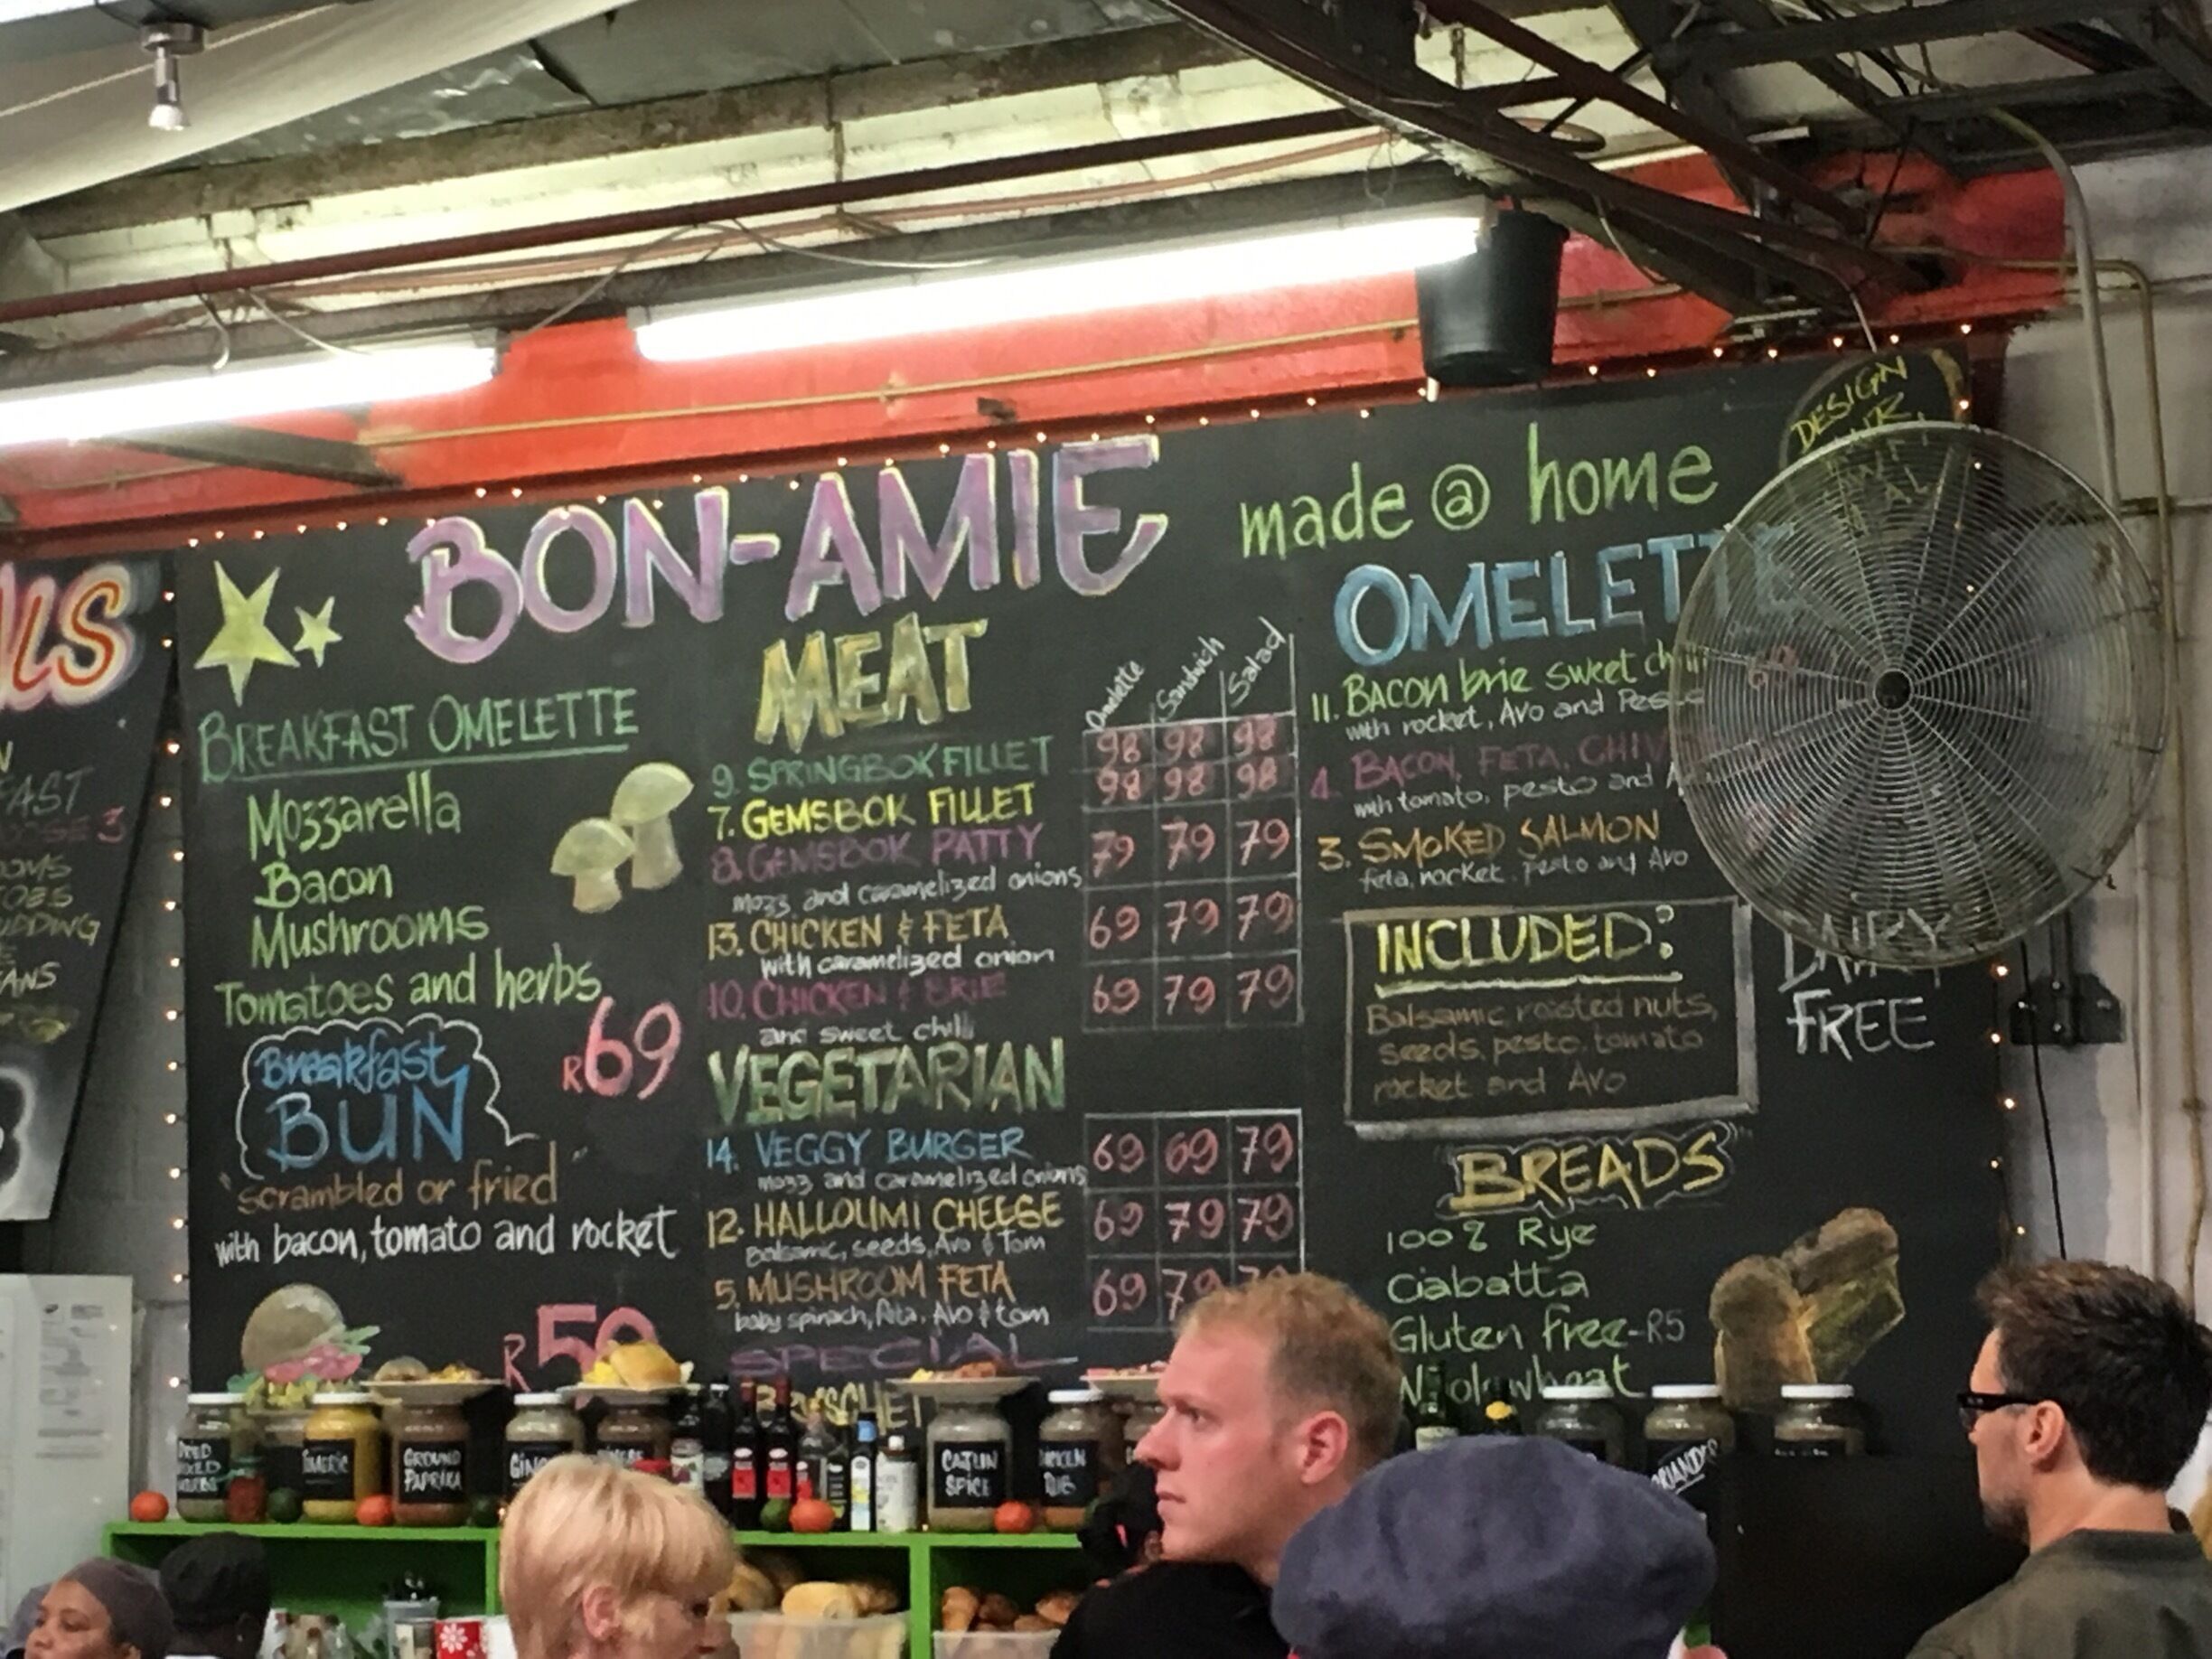 BON-AMIE
made @ home
DESIGN
BREAKFAST OMELETTE
Mozzarella
Bacon
Mushrooms
Tomatoes and herbs
R69
Breakfast
BUN
"scrambled or fried"
with bacon, tomato and rocket
R50
MEAT
Omelette Sandwich Salad
9. SPRINGBOK FILLET 98 98 98
7. GEMSBOK FILLET 98 98 98
8. GEMSBOK PATTY 79 79 79
mozz and caramelized onions
13. CHICKEN & FETA 69 79 79
with caramelized onion
10. CHICKEN & BRIE 69 79 79
and sweet chilli
VEGETARIAN
14. VEGGY BURGER 69 69 79
mozz and caramelized onions
12. HALLOUMI CHEESE 69 79 79
Balsamic, seeds, Avo & Tom
5. MUSHROOM FETA 69 79 79
baby spinach, feta, Avo & tom
SPECIAL
OMELETTE
11. BACON brie sweet chilli
with rocket, Avo and Pesto
4. BACON, FETA, CHIV
with tomato, pesto and
3. SMOKED SALMON
feta, rocket, pesto and Avo
INCLUDED:
Balsamic roasted nuts,
seeds, pesto, tomato
rocket and Avo
DAIRY
FREE
BREADS
100% Rye
Ciabatta
Gluten free-R5
Wholewheat
LS
FAST
OOSE 3
OMS
TOES
UDDING
EANS
DRIED
GROUND
PAPRIKA
CAJUN
SPICE